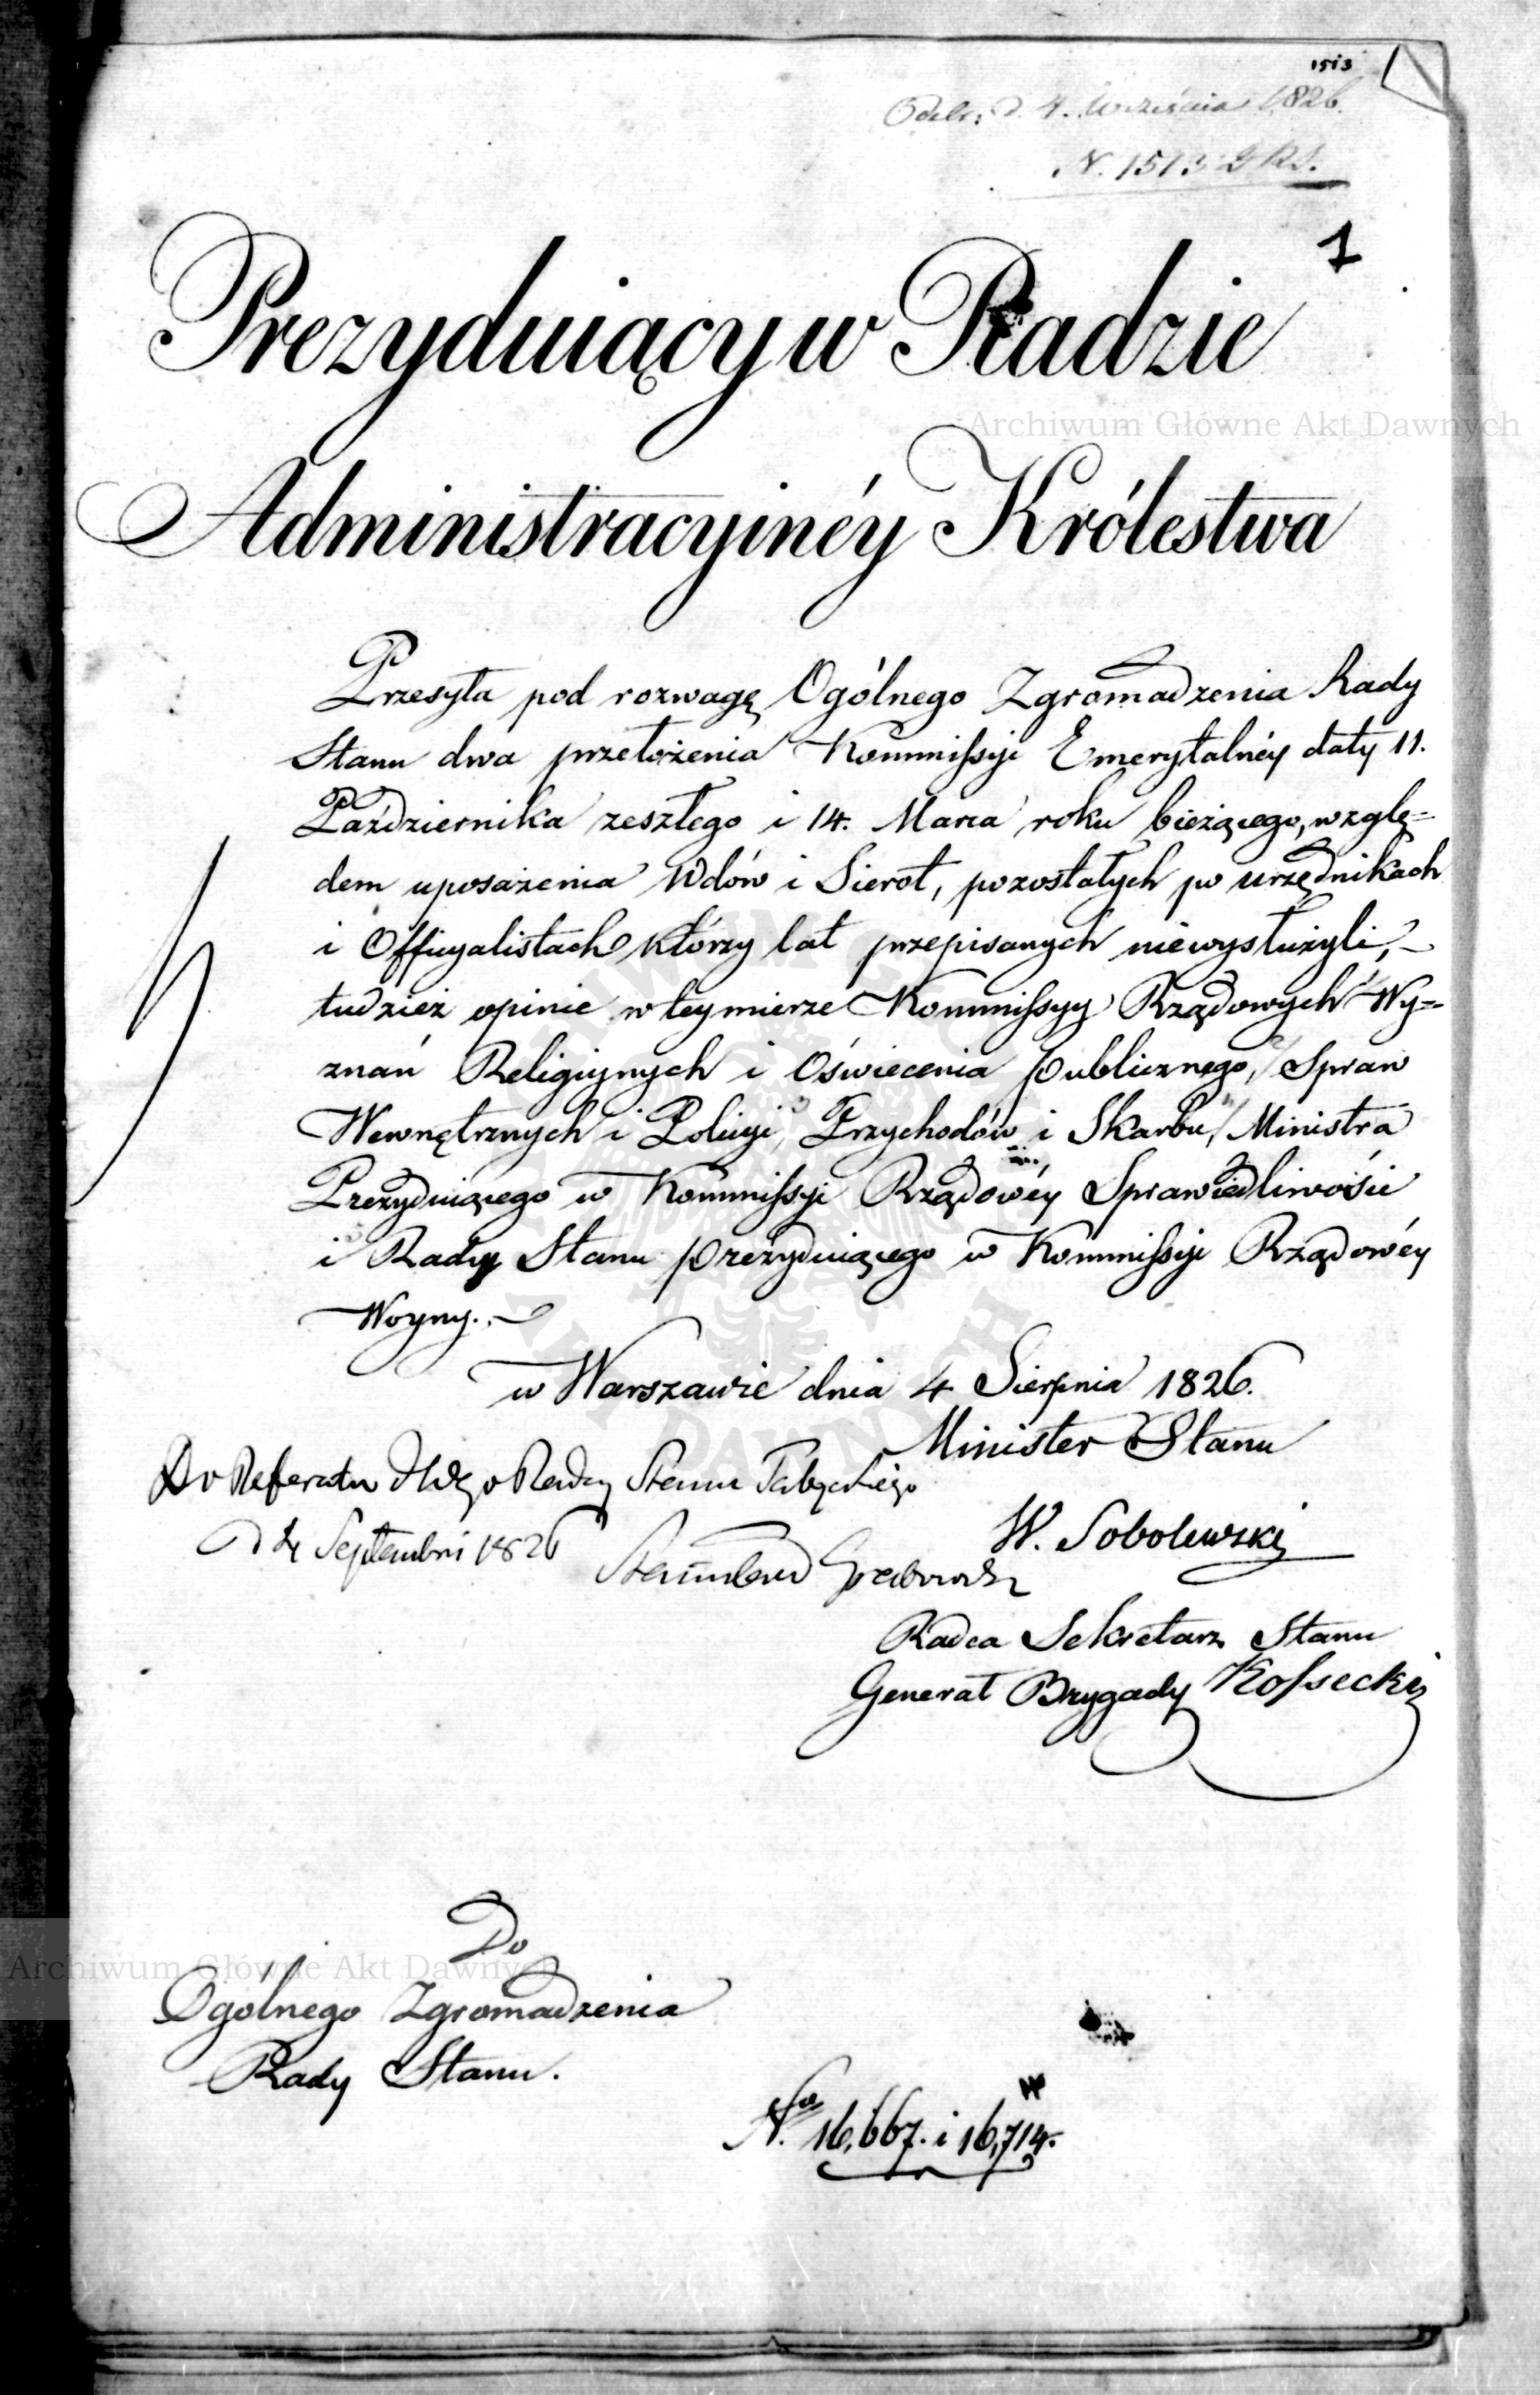 1513
Odebr: d. 4. Września 1826.
N. 1513
1
Prezyduiący w Radzie
Archiwum Główne Akt Dawnych
Administracyinéy Królestwa
Przesyła pod rozwagę Ogólnego Zgromadzenia Rady
Stanu dwa przełożenia Kommissyi Emerytalnéy daty 11.
Października zeszłego i 14. Marca roku bieżącego, wzglę=
dem uposażenia Wdów i Sierot, pozostałych po urzędnikach
i Officyalistach którzy lat przepisanych niewysłużyli,
tudzież opinie w teymierze Kommissyy Rządowych Wy=
znań Religiynych i Oświecenia publicznego, Spraw
Wewnętrznych i Policyi, Przychodów i Skarbu, Ministra
Prezyduiącego w Kommissyi Rządowéy Sprawiedliwości
i Radcy Stanu prezyduiącego w Kommissyi Rządowéy
Woyny.
w Warszawie dnia 4 Sierpnia 1826.
Minister Stanu
Do Referatu JWgo Radcy Stanu
d 4 Septembri 1826
W. Sobolewski
Stanisław Grabowski
Radca Sekretarz Stanu
Generał Brygady Kossecki
Do
Archiwum Główne Akt Dawnych
Ogólnego Zgromadzenia
Rady Stanu.
N. 16,667. i 16,714.